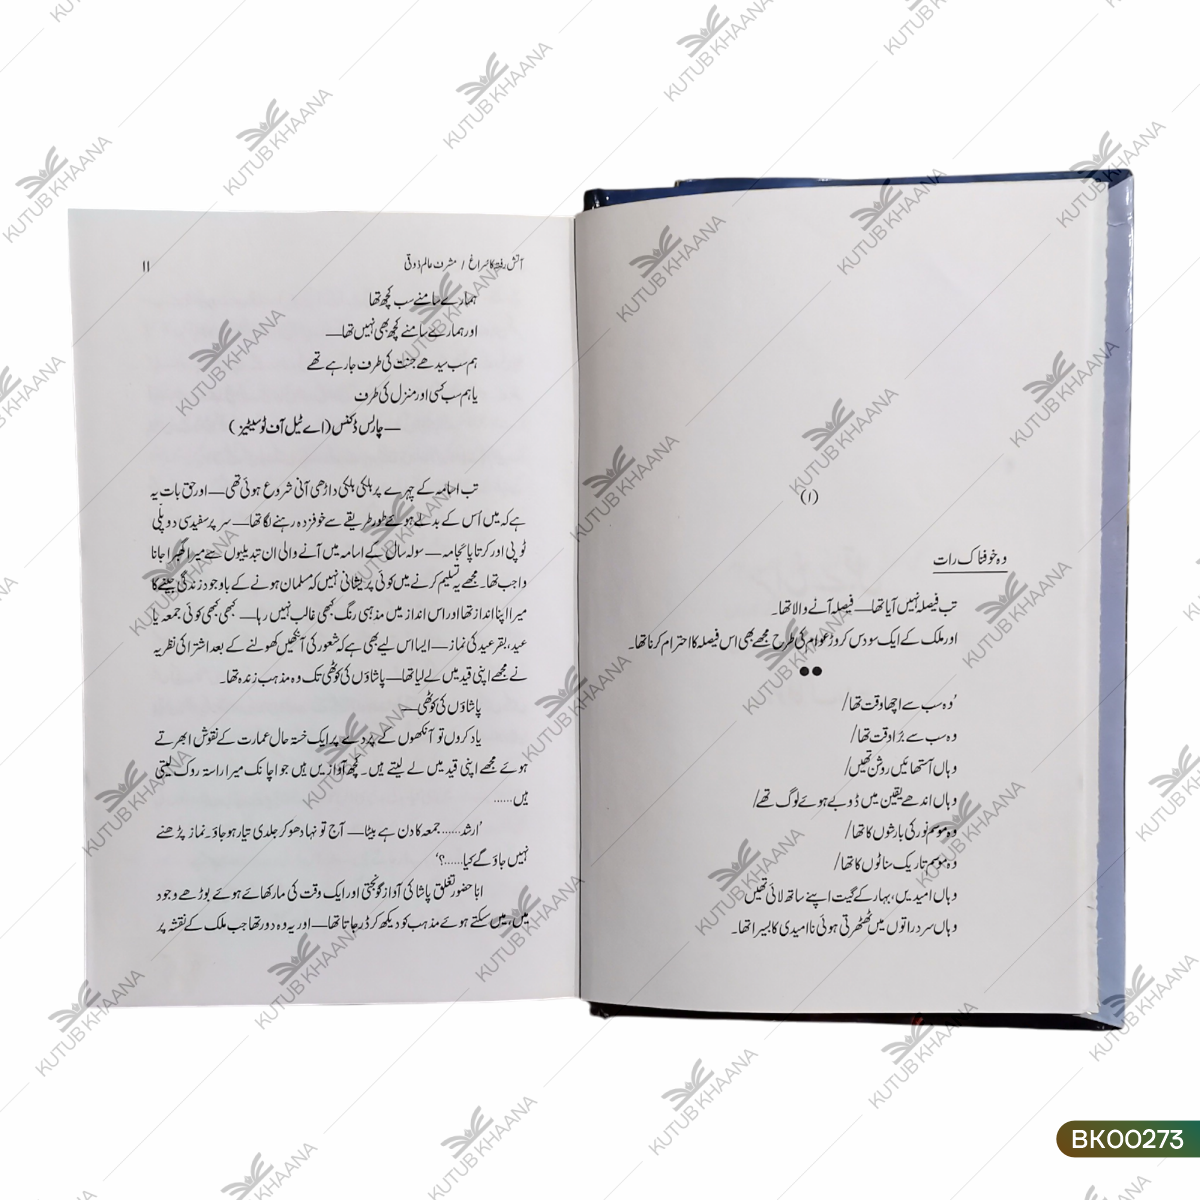 (۱)
وہ خوفناک رات
تب فیصلہ نہیں آیا تھا— فیصلہ آنے والا تھا۔
اور ملک کے ایک سو دس کروڑ عوام کی طرح مجھے بھی اس فیصلہ کا احترام کرنا تھا۔
●●
'وہ سب سے اچھا وقت تھا/
وہ سب سے برا وقت تھا/
وہاں آستھائیں روشن تھیں/
وہاں اندھے یقین میں ڈوبے ہوئے لوگ تھے/
وہ موسم نور کی بارشوں کا تھا/
وہ موسم تاریک سناٹوں کا تھا/
وہاں امیدیں، بہار کے گیت اپنے ساتھ لائی تھیں
وہاں سرد راتوں میں ٹھٹھرتی ہوئی ناامیدی کا بسیرا تھا۔
آتش رفتہ کا سراغ / مشرف عالم ذوقی ۱۱
ہمارے سامنے سب کچھ تھا
اور ہمارے سامنے کچھ بھی نہیں تھا—
ہم سب سیدھے جنت کی طرف جارہے تھے
یا ہم سب کسی اور منزل کی طرف
—چارلس ڈکنس (اے ٹیل آف ٹو سیٹیز)
تب اسامہ کے چہرے پر ہلکی ہلکی داڑھی آنی شروع ہوئی تھی— اور حق بات یہ
ہے کہ میں اُس کے بدلے ہوئے طور طریقے سے خوفزدہ رہنے لگا تھا— سر پر سفید سی دو پلّی
ٹوپی اور کرتا پائجامہ— سولہ سال کے اسامہ میں آنے والی ان تبدیلیوں سے میرا گھبرا جانا
واجب تھا۔ مجھے یہ تسلیم کرنے میں کوئی پریشانی نہیں کہ مسلمان ہونے کے باوجود زندگی جینے کا
میرا اپنا انداز تھا اور اس انداز میں مذہبی رنگ کبھی غالب نہیں رہا— کبھی کبھی کوئی جمعہ یا
عید، بقرعید کی نماز— ایسا اس لیے بھی ہے کہ شعور کی آنکھیں کھولنے کے بعد اشتراکی نظریہ
نے مجھے اپنی قید میں لے لیا تھا— پاشاؤں کی کوٹھی تک وہ مذہب زندہ تھا۔
پاشاؤں کی کوٹھی—
یاد کروں تو آنکھوں کے پردے پر ایک خستہ حال عمارت کے نقوش ابھرتے
ہوئے مجھے اپنی قید میں لے لیتے ہیں۔ کچھ آوازیں ہیں جو اچانک میرا راستہ روک لیتی
ہیں......
'ارشد...... جمعہ کا دن ہے بیٹا— آج تو نہا دھو کر جلدی تیار ہوجاؤ۔ نماز پڑھنے
نہیں جاؤ گے کیا......؟'
ابّا حضور تغلق پاشا کی آواز گونجتی اور ایک وقت کی مار کھائے ہوئے بوڑھے وجود
میں، میں سسکتے ہوئے مذہب کو دیکھ کر ڈر جاتا تھا— اور یہ وہ دور تھا جب ملک کے نقشہ پر
KUTUB KHAANA
BK00273